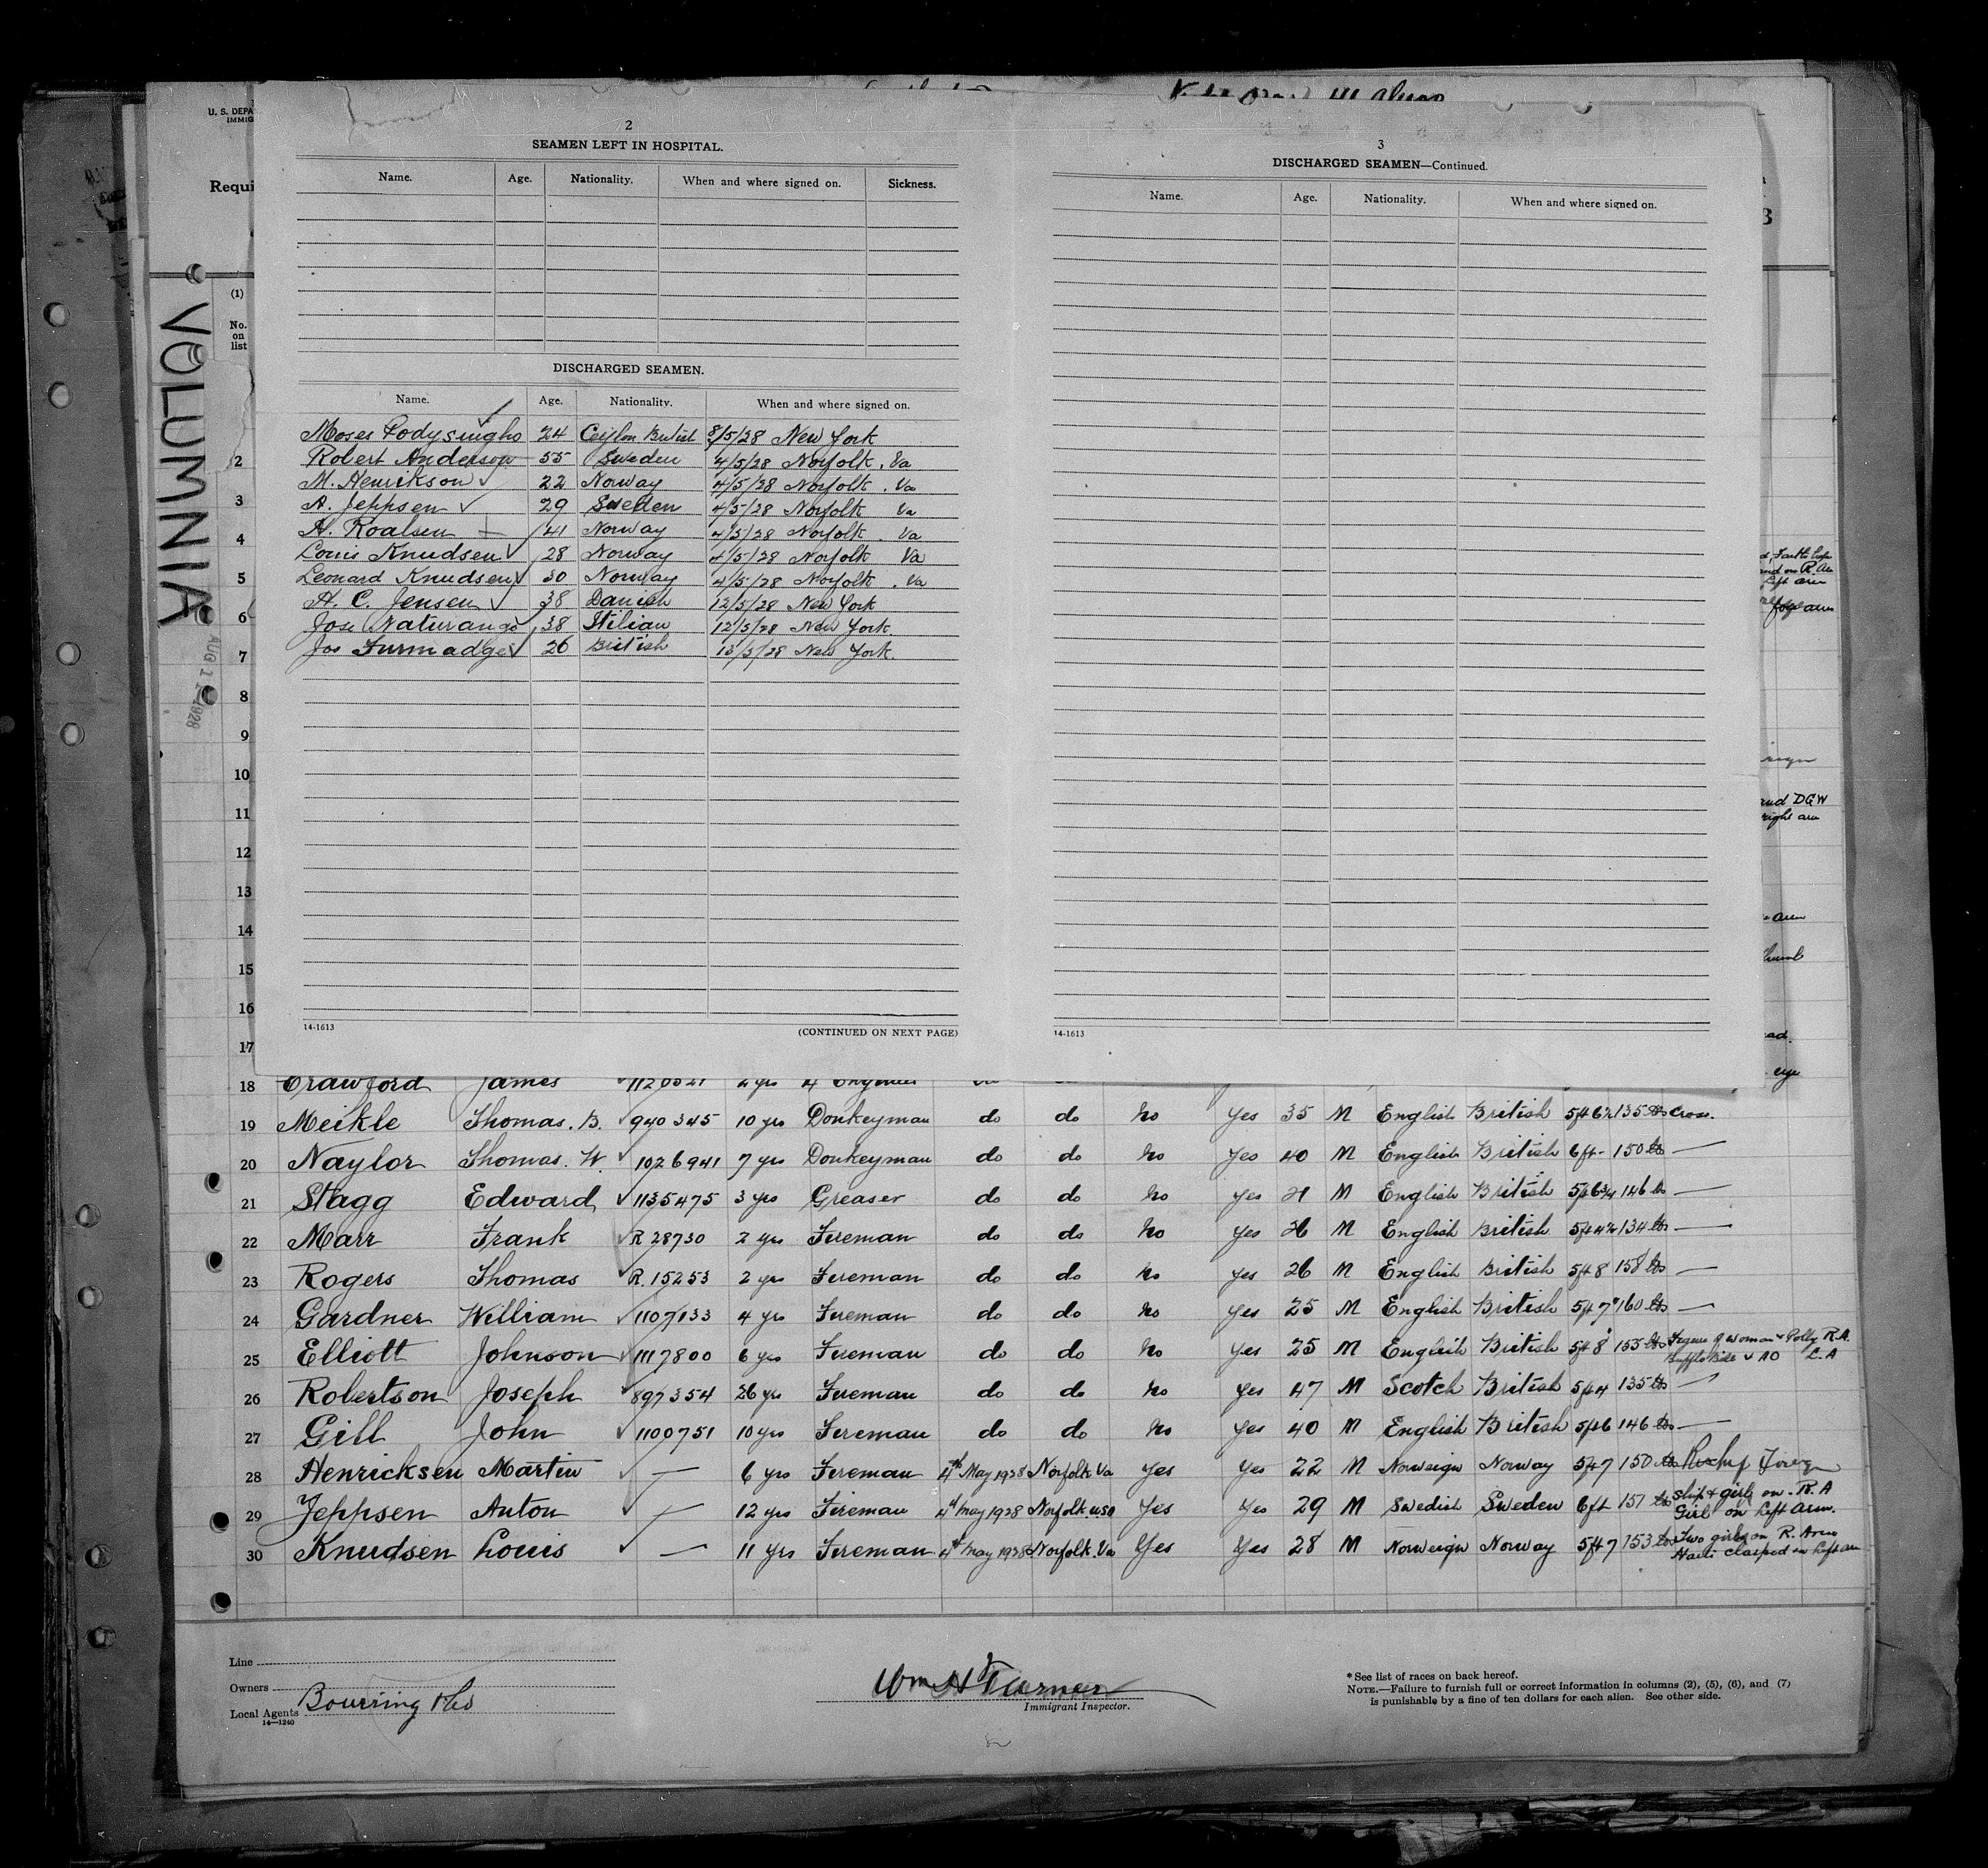 U. S. DEPA
IMMIG
Requi
VOLUMNIA
AUG 1 1928
(1)
No.
on
list
2
SEAMEN LEFT IN HOSPITAL.
Name. Age. Nationality. When and where signed on. Sickness.
DISCHARGED SEAMEN.
Name. Age. Nationality. When and where signed on.
Moses Podysingho 24 Ceylon British 8/5/28 New York
Robert Anderson 55 Sweden 4/5/28 Norfolk, Va
M. Henrikson 22 Norway 4/5/28 Norfolk, Va
A. Jeppsen 29 Sweden 4/5/28 Norfolk Va
H. Roalsen 41 Norway 4/5/28 Norfolk, Va
Louis Knudsen 28 Norway 4/5/28 Norfolk Va
Leonard Knudsen 30 Norway 4/5/28 Norfolk, Va
H. C. Jensen 38 Danish 12/5/28 New York
Jose Naturango 38 Italian 12/5/28 New York
Jos Furmadge 26 British 12/5/28 New York.
14-1613 (CONTINUED ON NEXT PAGE)
3
DISCHARGED SEAMEN—Continued.
Name. Age. Nationality. When and where signed on.
14-1613
2
3
4
5
6
7
8
9
10
11
12
13
14
15
16
17
and DGW
right arm
arm
18 Crawford James 4 Engineer
19 Meikle Thomas. B. 940345 10 yrs Donkeyman do do No Yes 35 M English British 5ft 6½ 135 lbs Cross.
20 Naylor Thomas. W. 1026941 7 yrs Donkeyman do do No Yes 40 M English British 6 ft - 150 lbs —
21 Stagg Edward 1135475 3 yrs Greaser do do No Yes 21 M English British 5ft 6¾ 146 lbs —
22 Marr Frank R 28730 2 yrs Fireman do do No Yes 26 M English British 5ft 4½ 134 lbs —
23 Rogers Thomas R. 15253 2 yrs Fireman do do No Yes 26 M English British 5ft 8 158 lbs —
24 Gardner William 1107133 4 yrs Fireman do do No Yes 25 M English British 5ft 7" 160 lbs —
25 Elliott Johnson 1117800 6 yrs Fireman do do No Yes 25 M English British 5ft 8 155 lbs Figure of Woman & Polly R.A.
Bufflo Bill & AO L.A
26 Robertson Joseph 897354 26 yrs Fireman do do No Yes 47 M Scotch British 5ft 4 135 lbs —
27 Gill John 1100751 10 yrs Fireman do do No Yes 40 M English British 5ft 6 146 lbs —
28 Henricksen Martin — 6 yrs Fireman 4th May 1928 Norfolk Va Yes Yes 22 M Norweign Norway 5ft 7 150 lbs
29 Jeppsen Anton — 12 yrs Fireman 4th May 1928 Norfolk. USA Yes Yes 29 M Swedish Sweden 6 ft 157 lbs Ship & girls on R. A
Girl on Left Arm.
30 Knudsen Louis — 11 yrs Fireman 4th May 1928 Norfolk. Va Yes Yes 28 M Norweign Norway 5ft 7 153 lbs Two girls on R. Arm
clasped on Left arm
Line
Owners
Local Agents Bowring & Co
14—1240
Wm H Turner
Immigrant Inspector.
* See list of races on back hereof.
NOTE.—Failure to furnish full or correct information in columns (2), (5), (6), and (7)
is punishable by a fine of ten dollars for each alien. See other side.